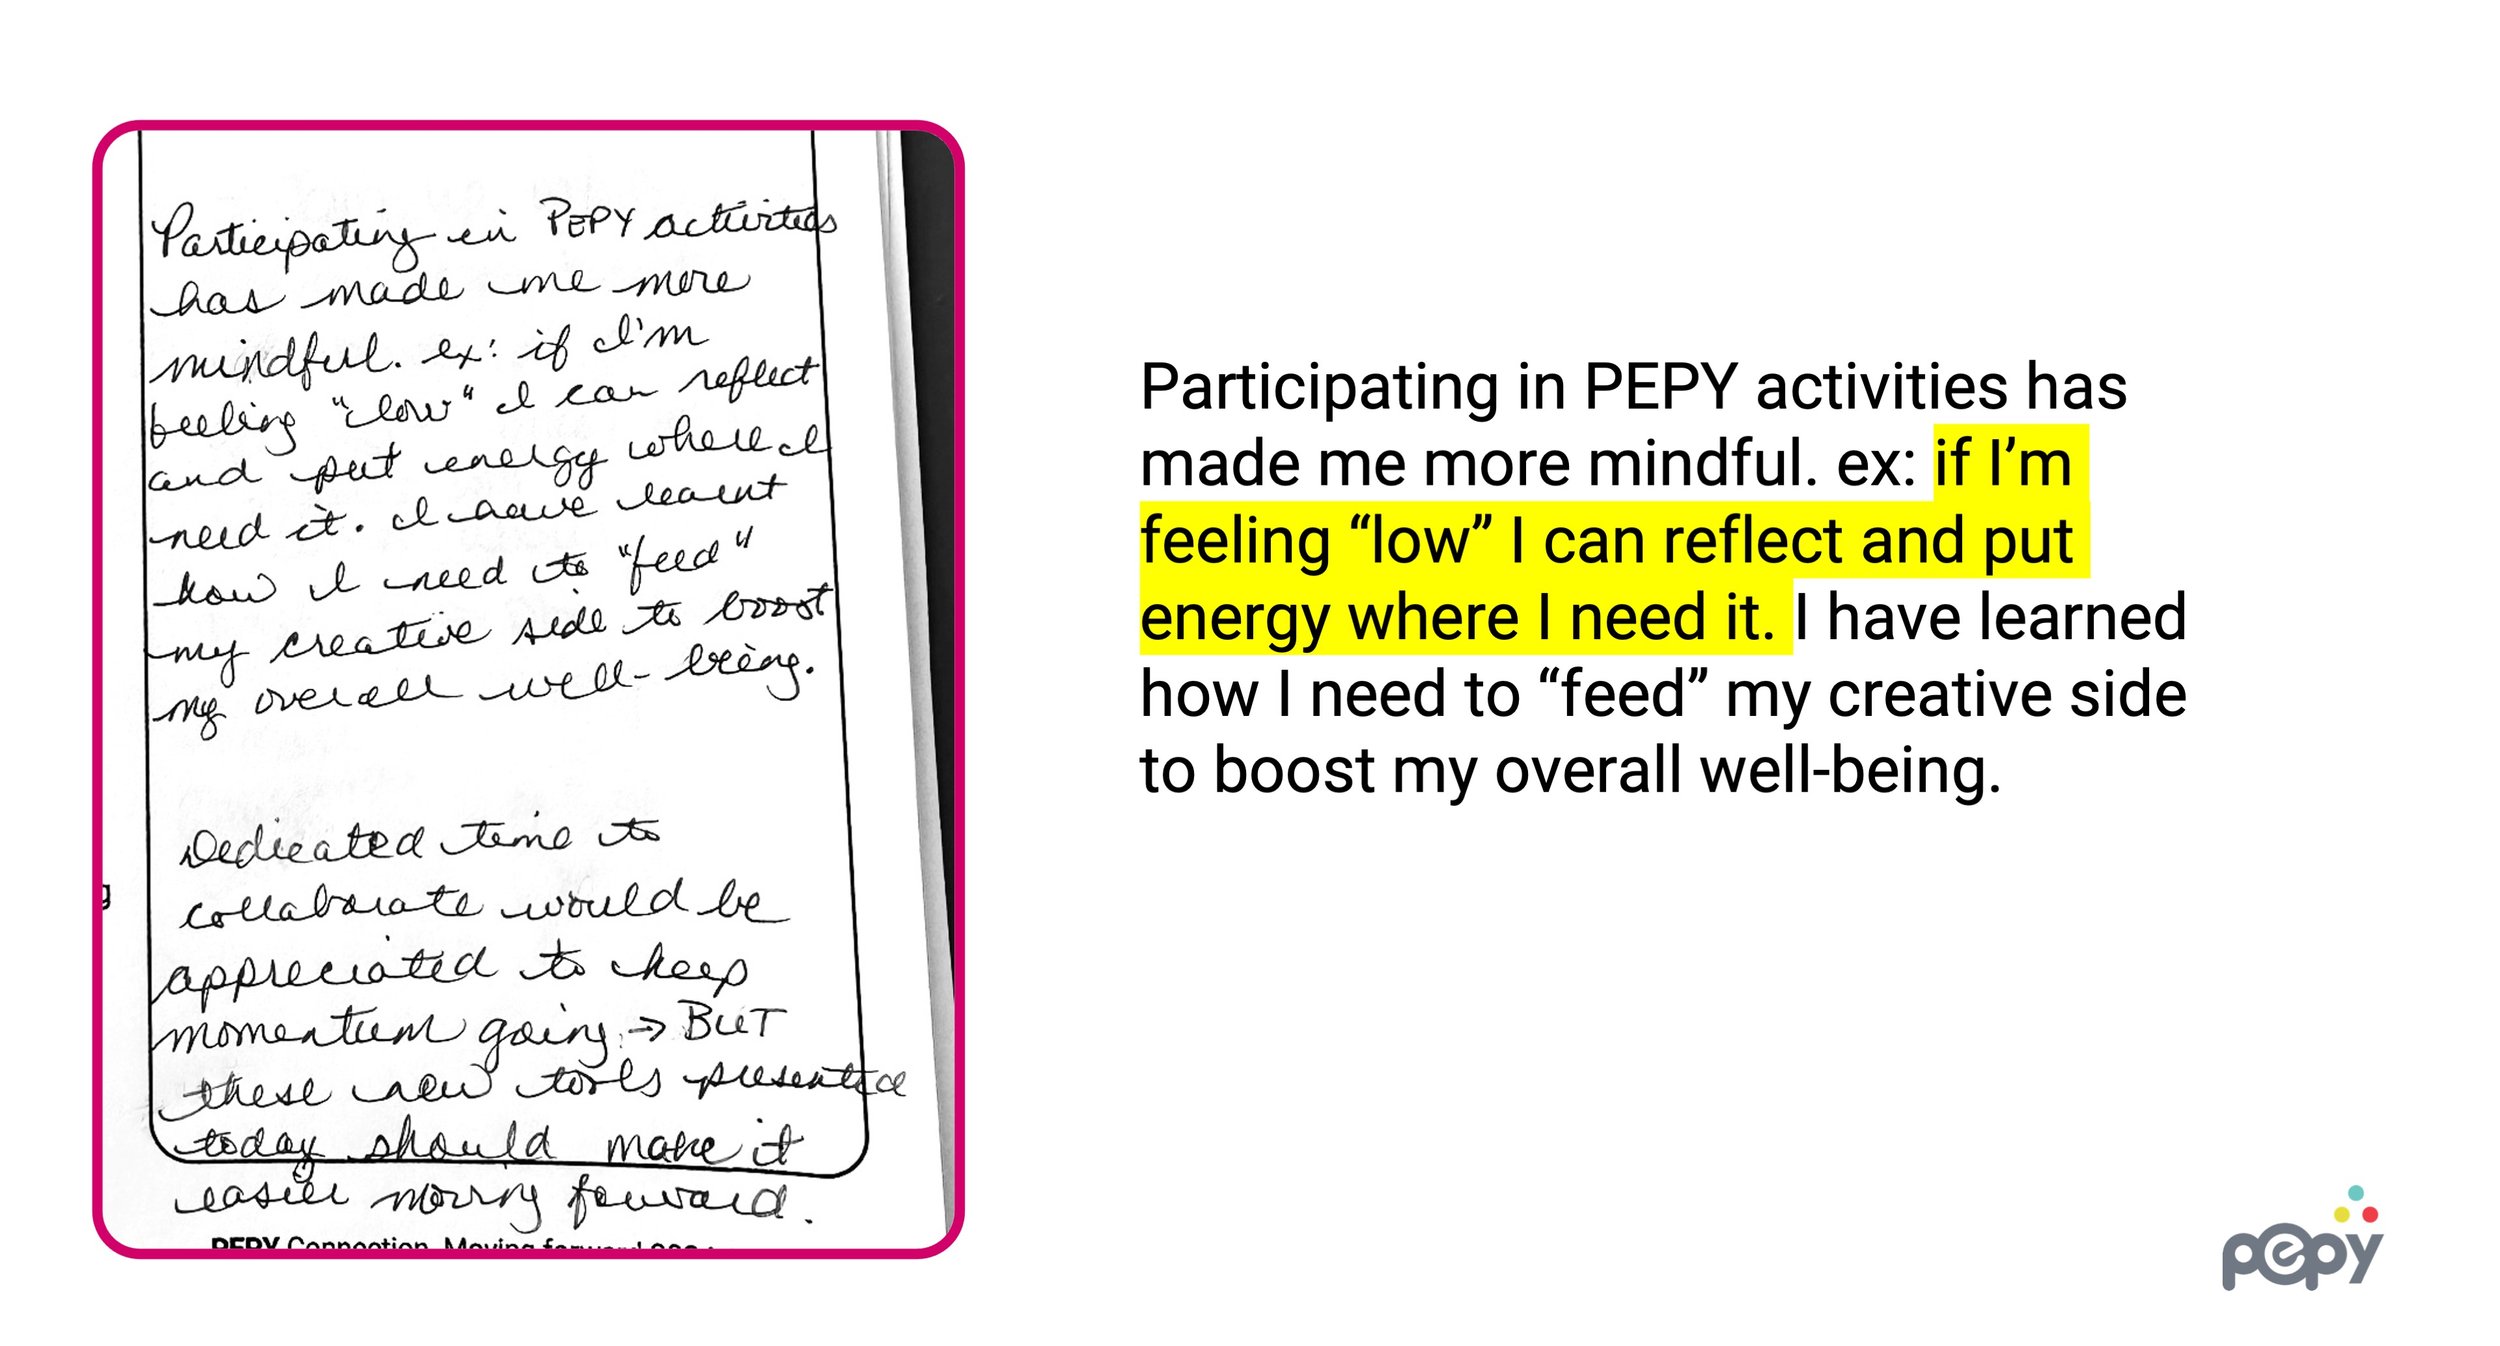 Participating in PEPY activities
has made me more
mindful. ex: if I'm
feeling "low" I can reflect
and put energy where I
need it. I have learnt
how I need to "feed"
my creative side to boost
my overall well-being.
Dedicated time to
collaborate would be
appreciated to keep
momentum going → BUT
these new tools presented
today should make it
easier moving forward.
g
PEPY Connection. Moving forward
Participating in PEPY activities has
made me more mindful. ex: if I’m
feeling “low” I can reflect and put
energy where I need it. I have learned
how I need to “feed” my creative side
to boost my overall well-being.
pepy